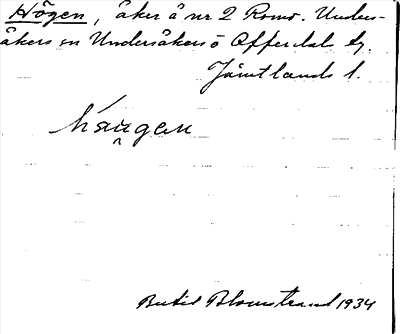 Högen, åker å nr 2 Romo. Under-
åkers sn Undersåkers o Offerdals tg.
Jämtlands l.
hаu̯gen
Bertil Blomstrand 1934